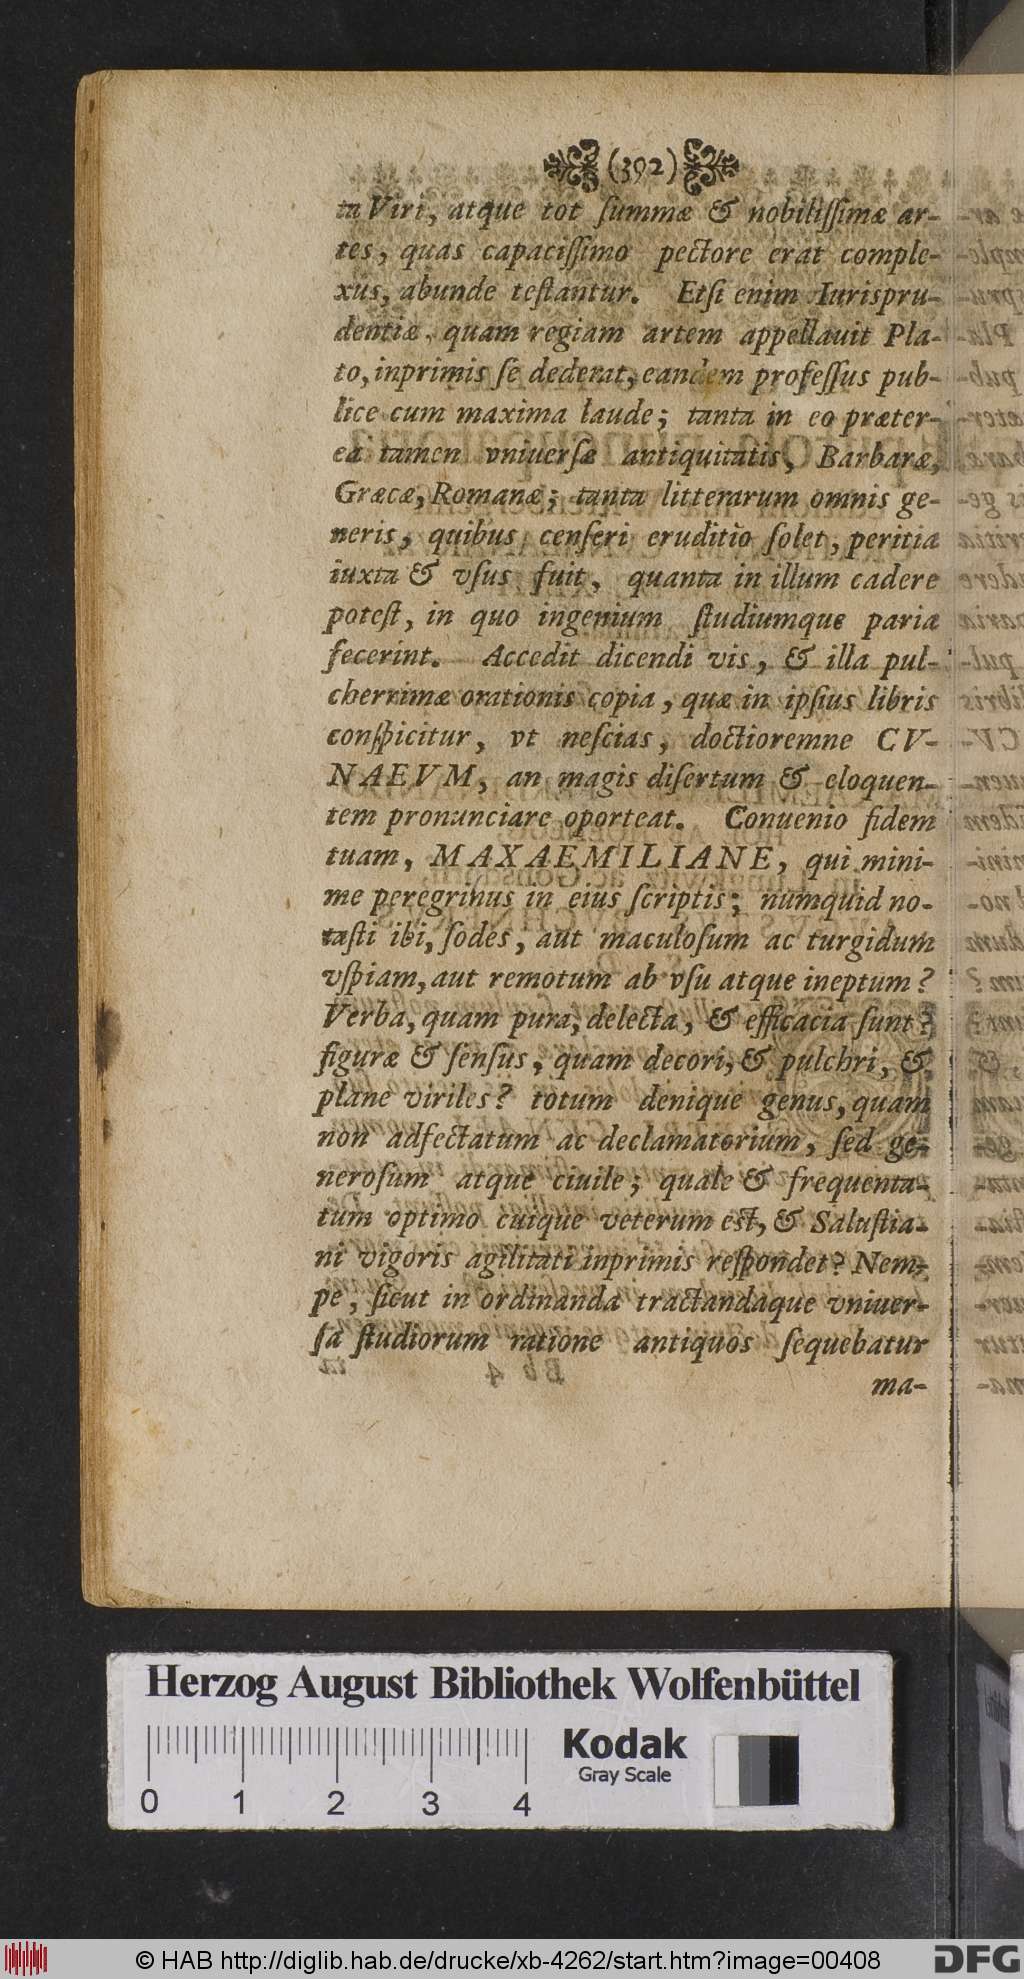 (392)
ta Viri, atque tot ſummæ & nobiliſſimæ ar-
tes, quas capaciſſimo pectore erat comple-
xus, abunde teſtantur. Etſi enim Iurispru-
dentiæ, quam regiam artem appellauit Pla-
to, inprimis ſe dederat, eandem profeſſus pub-
lice cum maxima laude; tanta in eo præter-
ea tamen vniuerſæ antiquitatis, Barbaræ,
Græcæ, Romanæ; tanta litterarum omnis ge-
neris, quibus cenſeri eruditio ſolet, peritia
iuxta & vſus fuit, quanta in illum cadere
poteſt, in quo ingenium ſtudiumque paria
fecerint. Accedit dicendi vis, & illa pul-
cherrimæ orationis copia, quæ in ipſius libris
conſpicitur, vt neſcias, doctioremne CV-
NAEVM, an magis diſertum & eloquen-
tem pronunciare oporteat. Conuenio fidem
tuam, MAXAEMILIANE, qui mini-
me peregrinus in eius ſcriptis; numquid no-
taſti ibi, ſodes, aut maculoſum ac turgidum
vſpiam, aut remotum ab vſu atque ineptum?
Verba, quam pura, delecta, & efficacia ſunt?
figuræ & ſenſus, quam decori, & pulchri, &
plane viriles? totum denique genus, quam
non adfectatum ac declamatorium, ſed ge-
neroſum atque ciuile; quale & frequenta-
tum optimo cuique veterum est, & Saluſtia-
ni vigoris agilitati inprimis reſpondet? Nem-
pe, ſicut in ordinanda tractandaque vniuer-
ſa ſtudiorum ratione antiquos ſequebatur
ma-
Herzog August Bibliothek Wolfenbüttel
Kodak
Gray Scale
0 1 2 3 4
© HAB http://diglib.hab.de/drucke/xb-4262/start.htm?image=00408
DFG